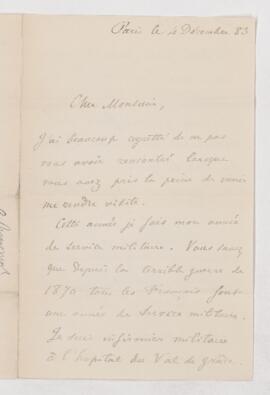 Paris le 4 Décembre 83
Cher Monsieur,
J'ai beaucoup regretté de ne pas
vous avoir rencontré lorsque
vous avez pris la peine de venir
me rendre visite.
Cette année je fais mon année
de service militaire. Vous savez
que depuis la terrible guerre de
1870 tous les Français font
une année de service militaire.
Je suis infirmier militaire
à l'hôpital du Val de grâce.